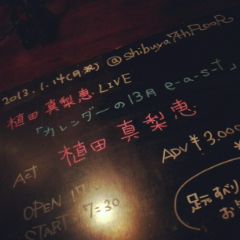 2013.1.14(月,祝) @shibuya 7th FLOOR
植田 真梨恵 LIVE
「カレンダーの13月 e-a-s-t」
植田 真梨恵
ACT
ADV ¥3,000
OPEN 17
START 7:30